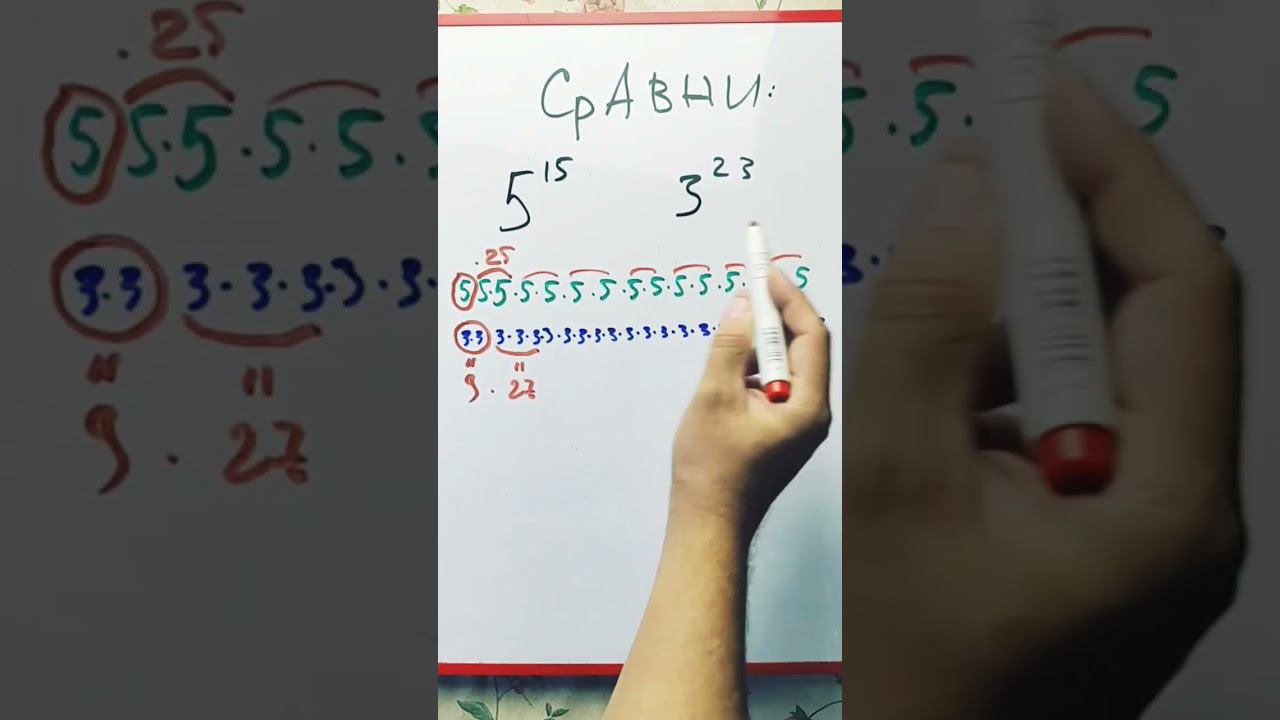 СРАВНИ:
5^15 3^23
.25
5 5.5.5.5.5.5.5.5.5.5.5. 5
3.3 3.3.3.3.3.3.3.3.3.3.3.3.3.
" "
9 . 27